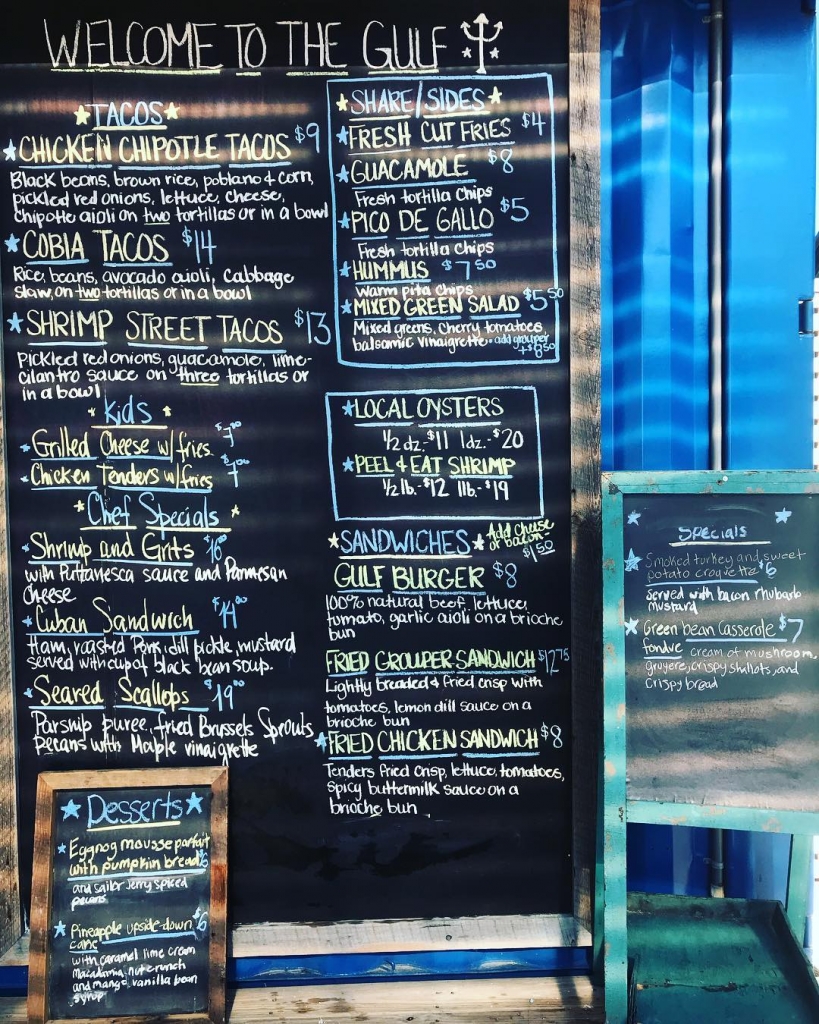 WELCOME TO THE GULF
TACOS
CHICKEN CHIPOTLE TACOS $9
Black beans, brown rice, poblano & corn,
pickled red onions, lettuce, cheese,
chipotle aioli on two tortillas or in a bowl
COBIA TACOS $14
Rice, beans, avocado aioli, cabbage
slaw, on two tortillas or in a bowl
SHRIMP STREET TACOS $13
Pickled red onions, guacamole, lime-
cilantro sauce on three tortillas or
in a bowl
Kids
Grilled Cheese w/fries $7
Chicken Tenders w/fries $7
Chef Specials
Shrimp and Grits $16
with Puttanesca sauce and Parmesan
Cheese
Cuban Sandwich $14
Ham, roasted Pork, dill pickle, mustard
served with cup of black bean soup.
Seared Scallops $19
Parsnip puree, fried Brussels Sprouts,
Pecans with Maple vinaigrette
SHARE/SIDES
FRESH CUT FRIES $4
GUACAMOLE $8
Fresh tortilla chips
PICO DE GALLO $5
Fresh tortilla chips
HUMMUS $7 50
warm pita chips
MIXED GREEN SALAD $5 50
Mixed greens, cherry tomatoes
balsamic vinaigrette. add grouper
+$8 50
LOCAL OYSTERS
1/2 dz. $11 1dz.-$20
PEEL & EAT SHRIMP
1/2 lb.-$12 1lb.-$19
SANDWICHES
Add cheese
or bacon-
$1 50
GULF BURGER $8
100% natural beef, lettuce,
tomato, garlic aioli on a brioche
bun
FRIED GROUPER SANDWICH $12 75
Lightly breaded & fried crisp with
tomatoes, lemon dill sauce on a
brioche bun
FRIED CHICKEN SANDWICH $8
Tenders fried crisp, lettuce, tomatoes,
spicy buttermilk sauce on a
brioche bun
Desserts
Eggnog mousse parfait
with pumpkin bread
and sailor Jerry spiced
pecans
Pineapple upside-down $6
cake
with caramel lime cream
Macadamia nut crunch
and mango vanilla bean
syrup
Specials
Smoked turkey and sweet
potato croquette $6
served with bacon rhubarb
mustard
Green bean Casserole $7
fondue cream of mushroom,
gruyere, crispy shallots, and
crispy bread